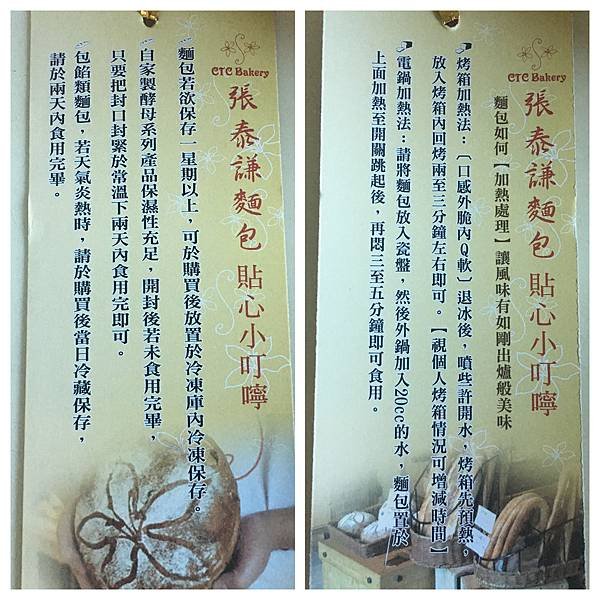 CTC Bakery
張泰謙麵包 貼心小叮嚀
麵包若欲保存一星期以上，可於購買後放置於冷凍庫內冷凍保存。
自家製酵母系列產品保濕性充足，開封後若未食用完畢，
只要把封口封緊於常溫下兩天內食用完即可。
包餡類麵包，若天氣炎熱時，請於購買後當日冷藏保存，
請於兩天內食用完畢。
CTC Bakery
張泰謙麵包 貼心小叮嚀
麵包如何【加熱處理】讓風味有如剛出爐般美味
烤箱加熱法：〔口感外脆內Q軟〕退冰後，噴些許開水，烤箱先預熱，
放入烤箱內回烤兩至三分鐘左右即可。【視個人烤箱情況可增減時間】
電鍋加熱法：請將麵包放入瓷盤，然後外鍋加入20cc的水，麵包置於
上面加熱至開關跳起後，再悶三至五分鐘即可食用。